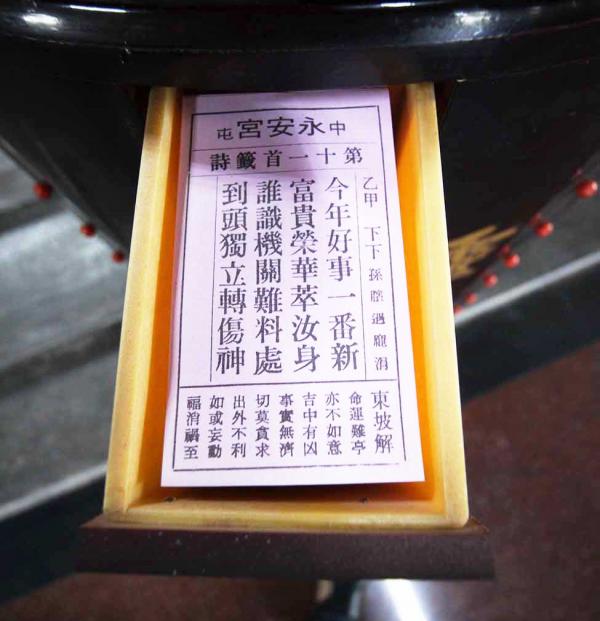 中永安宮屯
第十一首籤詩
乙甲 下下 孫臏遇龐涓
今年好事一番新
富貴榮華萃汝身
誰識機關難料處
到頭獨立轉傷神
東坡解
命運雖亨
亦不如意
吉中有凶
事實無濟
切莫貪求
出外不利
如或妄動
福消禍至